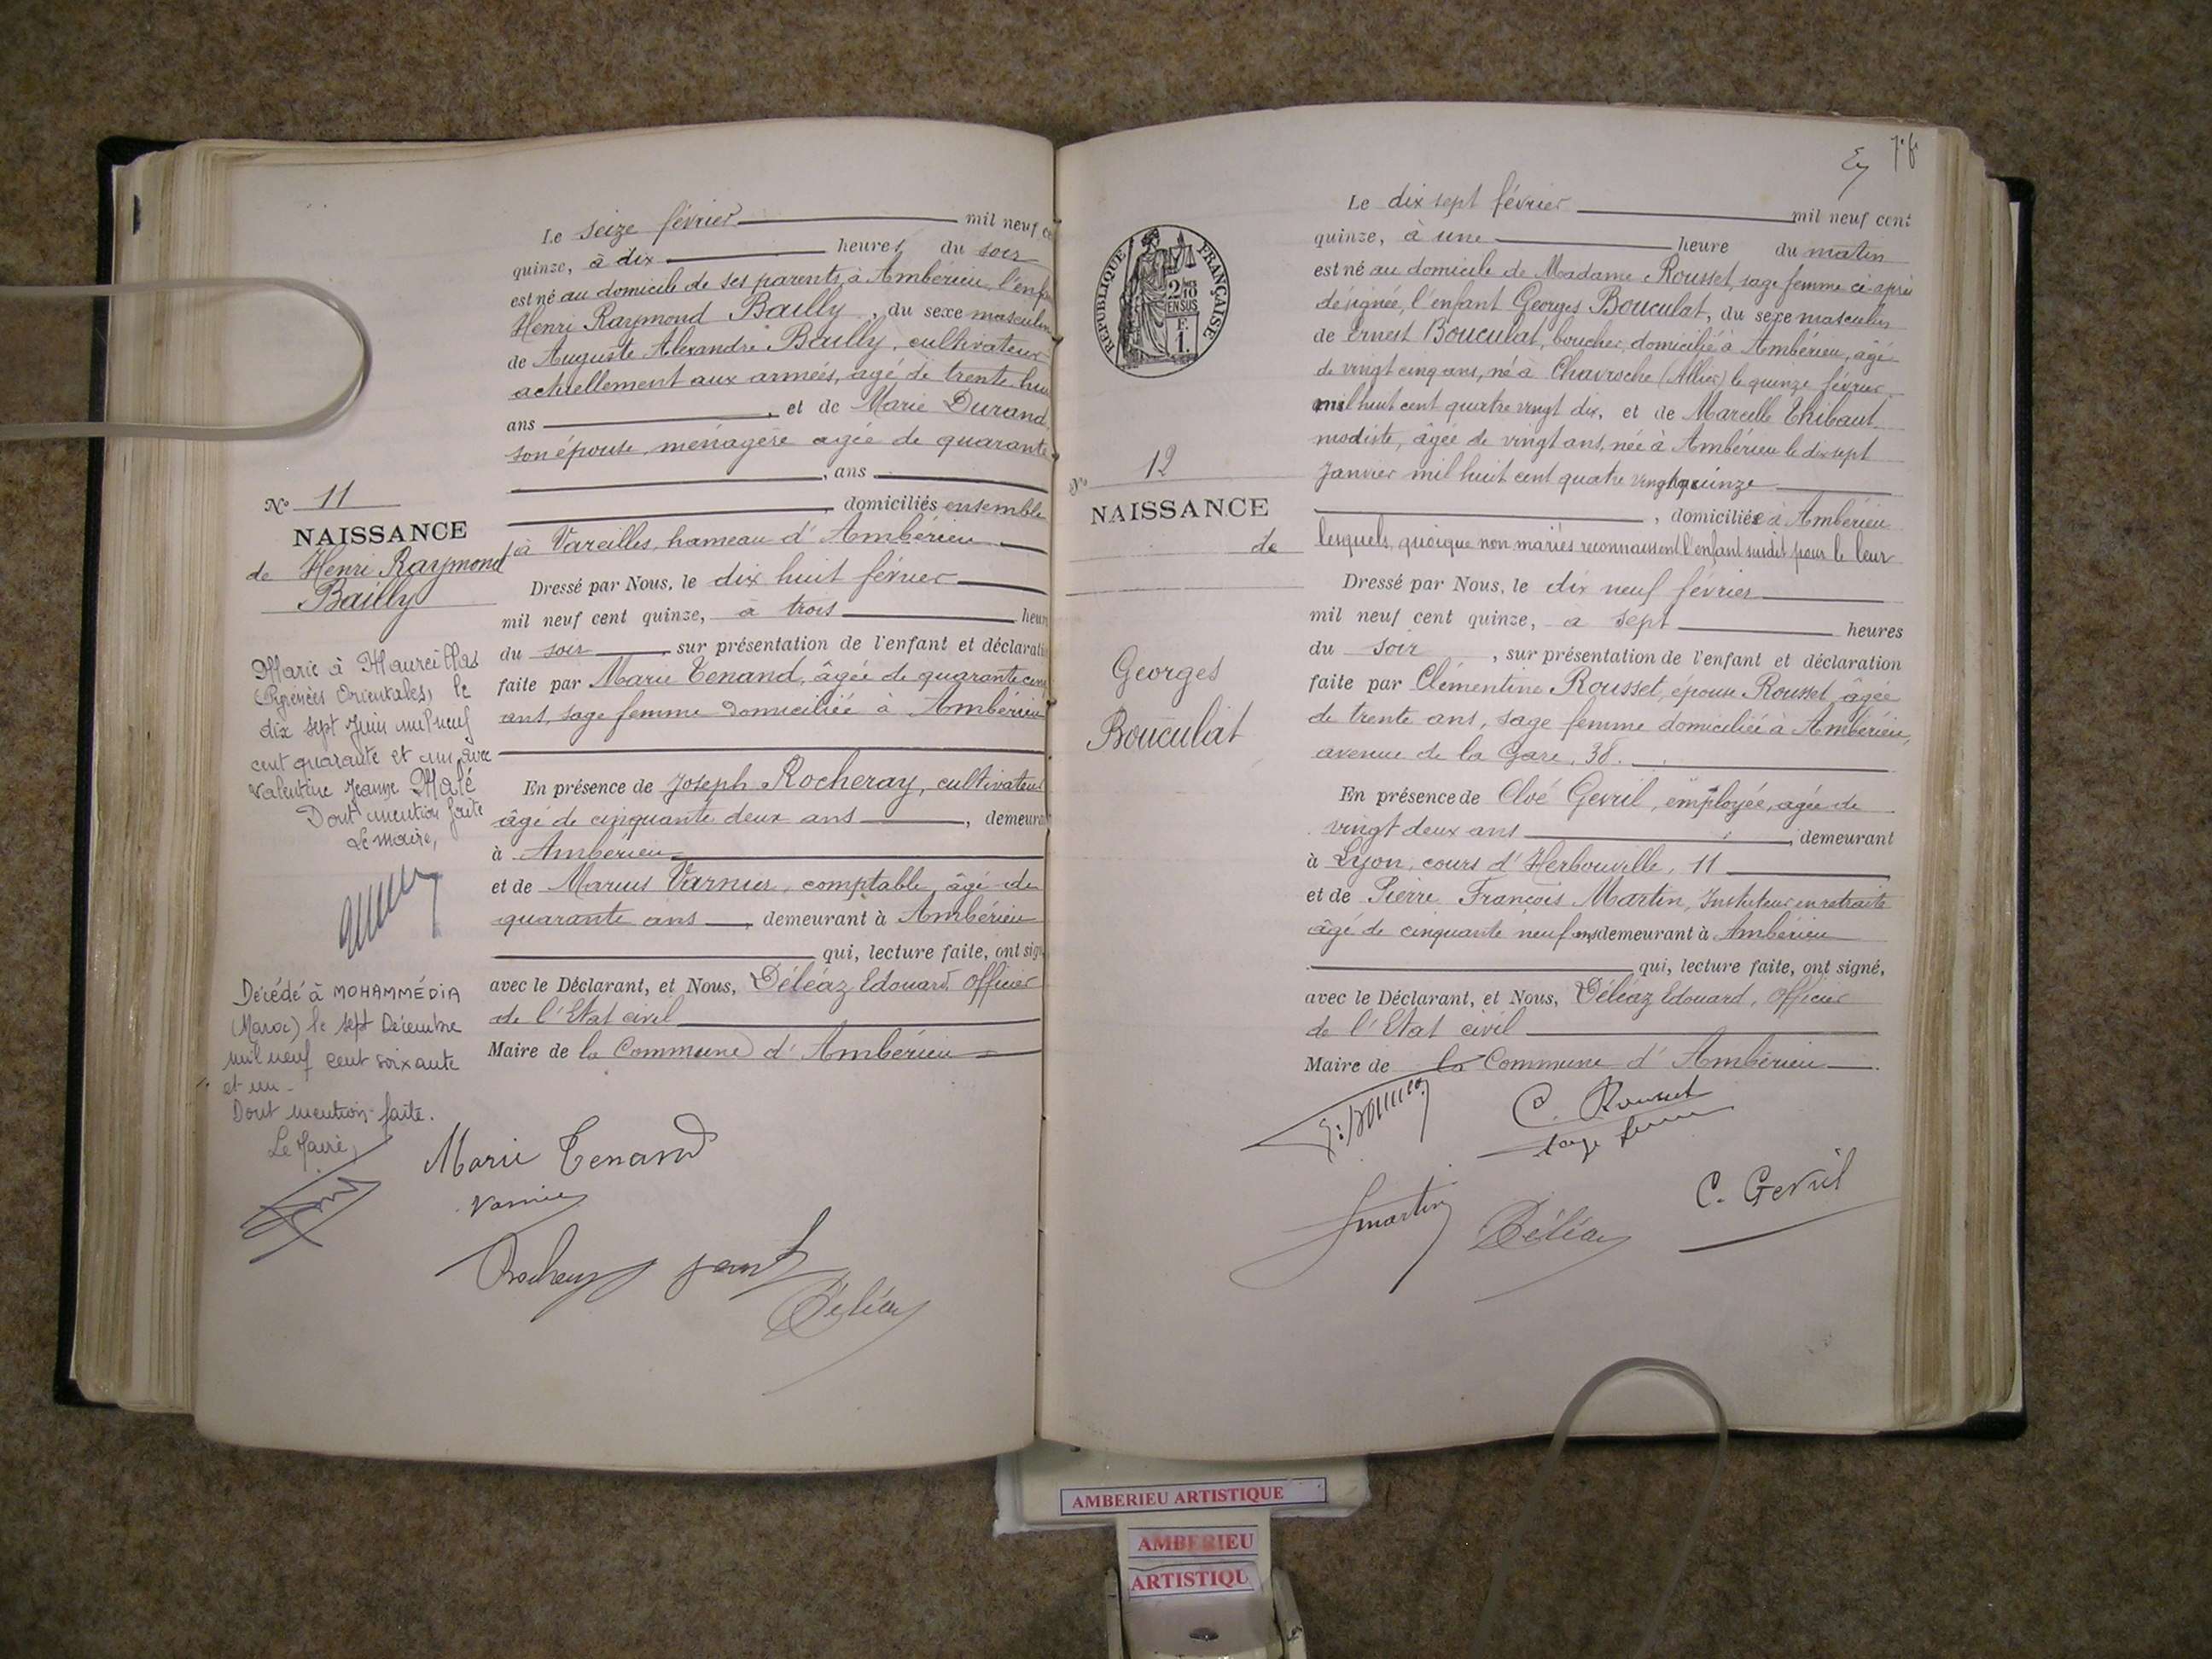 Le seize février mil neuf ce
quinze, à dix heures du soir
est né au domicile de ses parents à Ambérieu l'enf
Henri Raymond Bailly, du sexe masculin
de Auguste Alexandre Bailly, cultivateur
actuellement aux armées, agé de trente hui
ans, et de Marie Durand
son épouse, ménagère agée de quarante
, ans
domiciliés ensemble
à Vareilles, hameau d'Ambérieu
Dressé par Nous, le dix huit février
mil neuf cent quinze, à trois heur
du soir, sur présentation de l'enfant et déclarati
faite par Marie Tenand, âgée de quarante cinq
ans, sage femme domiciliée à Ambérieu
En présence de Joseph Rocheray, cultivateur
âgé de cinquante deux ans, demeura
à Ambérieu
et de Marius Varnier, comptable, âgé de
quarante ans, demeurant à Ambérieu
qui, lecture faite, ont sign
avec le Déclarant, et Nous, Déléaz Edouard Officier
de l'Etat civil
Maire de la Commune d'Ambérieu
Nº 11
NAISSANCE
de Henri Raymond
Bailly
Marié à Maureillas
(Pyrénées Orientales) le
dix sept Juin mil neuf
cent quarante et un avec
Valentine Jeanne Malé
Dont mention faite
Le maire,
Décédé à MOHAMMÉDIA
(Maroc) le sept Décembre
mil neuf cent soixante
et un -
Dont mention faite.
Le Maire,
Marie Tenand
Varnier
Rocheray
Déléaz
7e f
Le dix sept février mil neuf cent
quinze, à une heure du matin
est né au domicile de Madame Rousset, sage femme ci-après
désignée, l'enfant Georges Bouculat, du sexe masculin
de Ernest Bouculat, boucher, domicilié à Ambérieu, âgé
de vingt cinq ans, né à Chavroche (Allier) le quinze février
mil huit cent quatre vingt dix, et de Marcelle Thibaut
modiste, âgée de vingt ans, née à Ambérieu le dix sept
Janvier mil huit cent quatre vingt quinze
, domiciliée à Ambérieu
lesquels, quoique non mariés reconnaissent l'enfant susdit pour le leur
Dressé par Nous, le dix neuf février
mil neuf cent quinze, à sept heures
du soir, sur présentation de l'enfant et déclaration
faite par Clémentine Rousset, épouse Rousset, âgée
de trente ans, sage femme domiciliée à Ambérieu,
avenue de la Gare, 38.
En présence de Cloé Gevril, employée, agée de
vingt deux ans, demeurant
à Lyon, cours d'Herbouville, 11
et de Pierre François Martin, Instituteur en retraite
âgé de cinquante neuf ans demeurant à Ambérieu
qui, lecture faite, ont signé,
avec le Déclarant, et Nous, Déléaz Edouard, Officier
de l'Etat civil
Maire de la Commune d'Ambérieu
RÉPUBLIQUE FRANÇAISE
2 DMES
10
EN SUS
F.
1.
Nº 12
NAISSANCE
de
Georges
Bouculat
C. Rousset
sage femme
Martin
Déléaz
C. Gevril
AMBERIEU ARTISTIQUE
AMBERIEU
ARTISTIQU